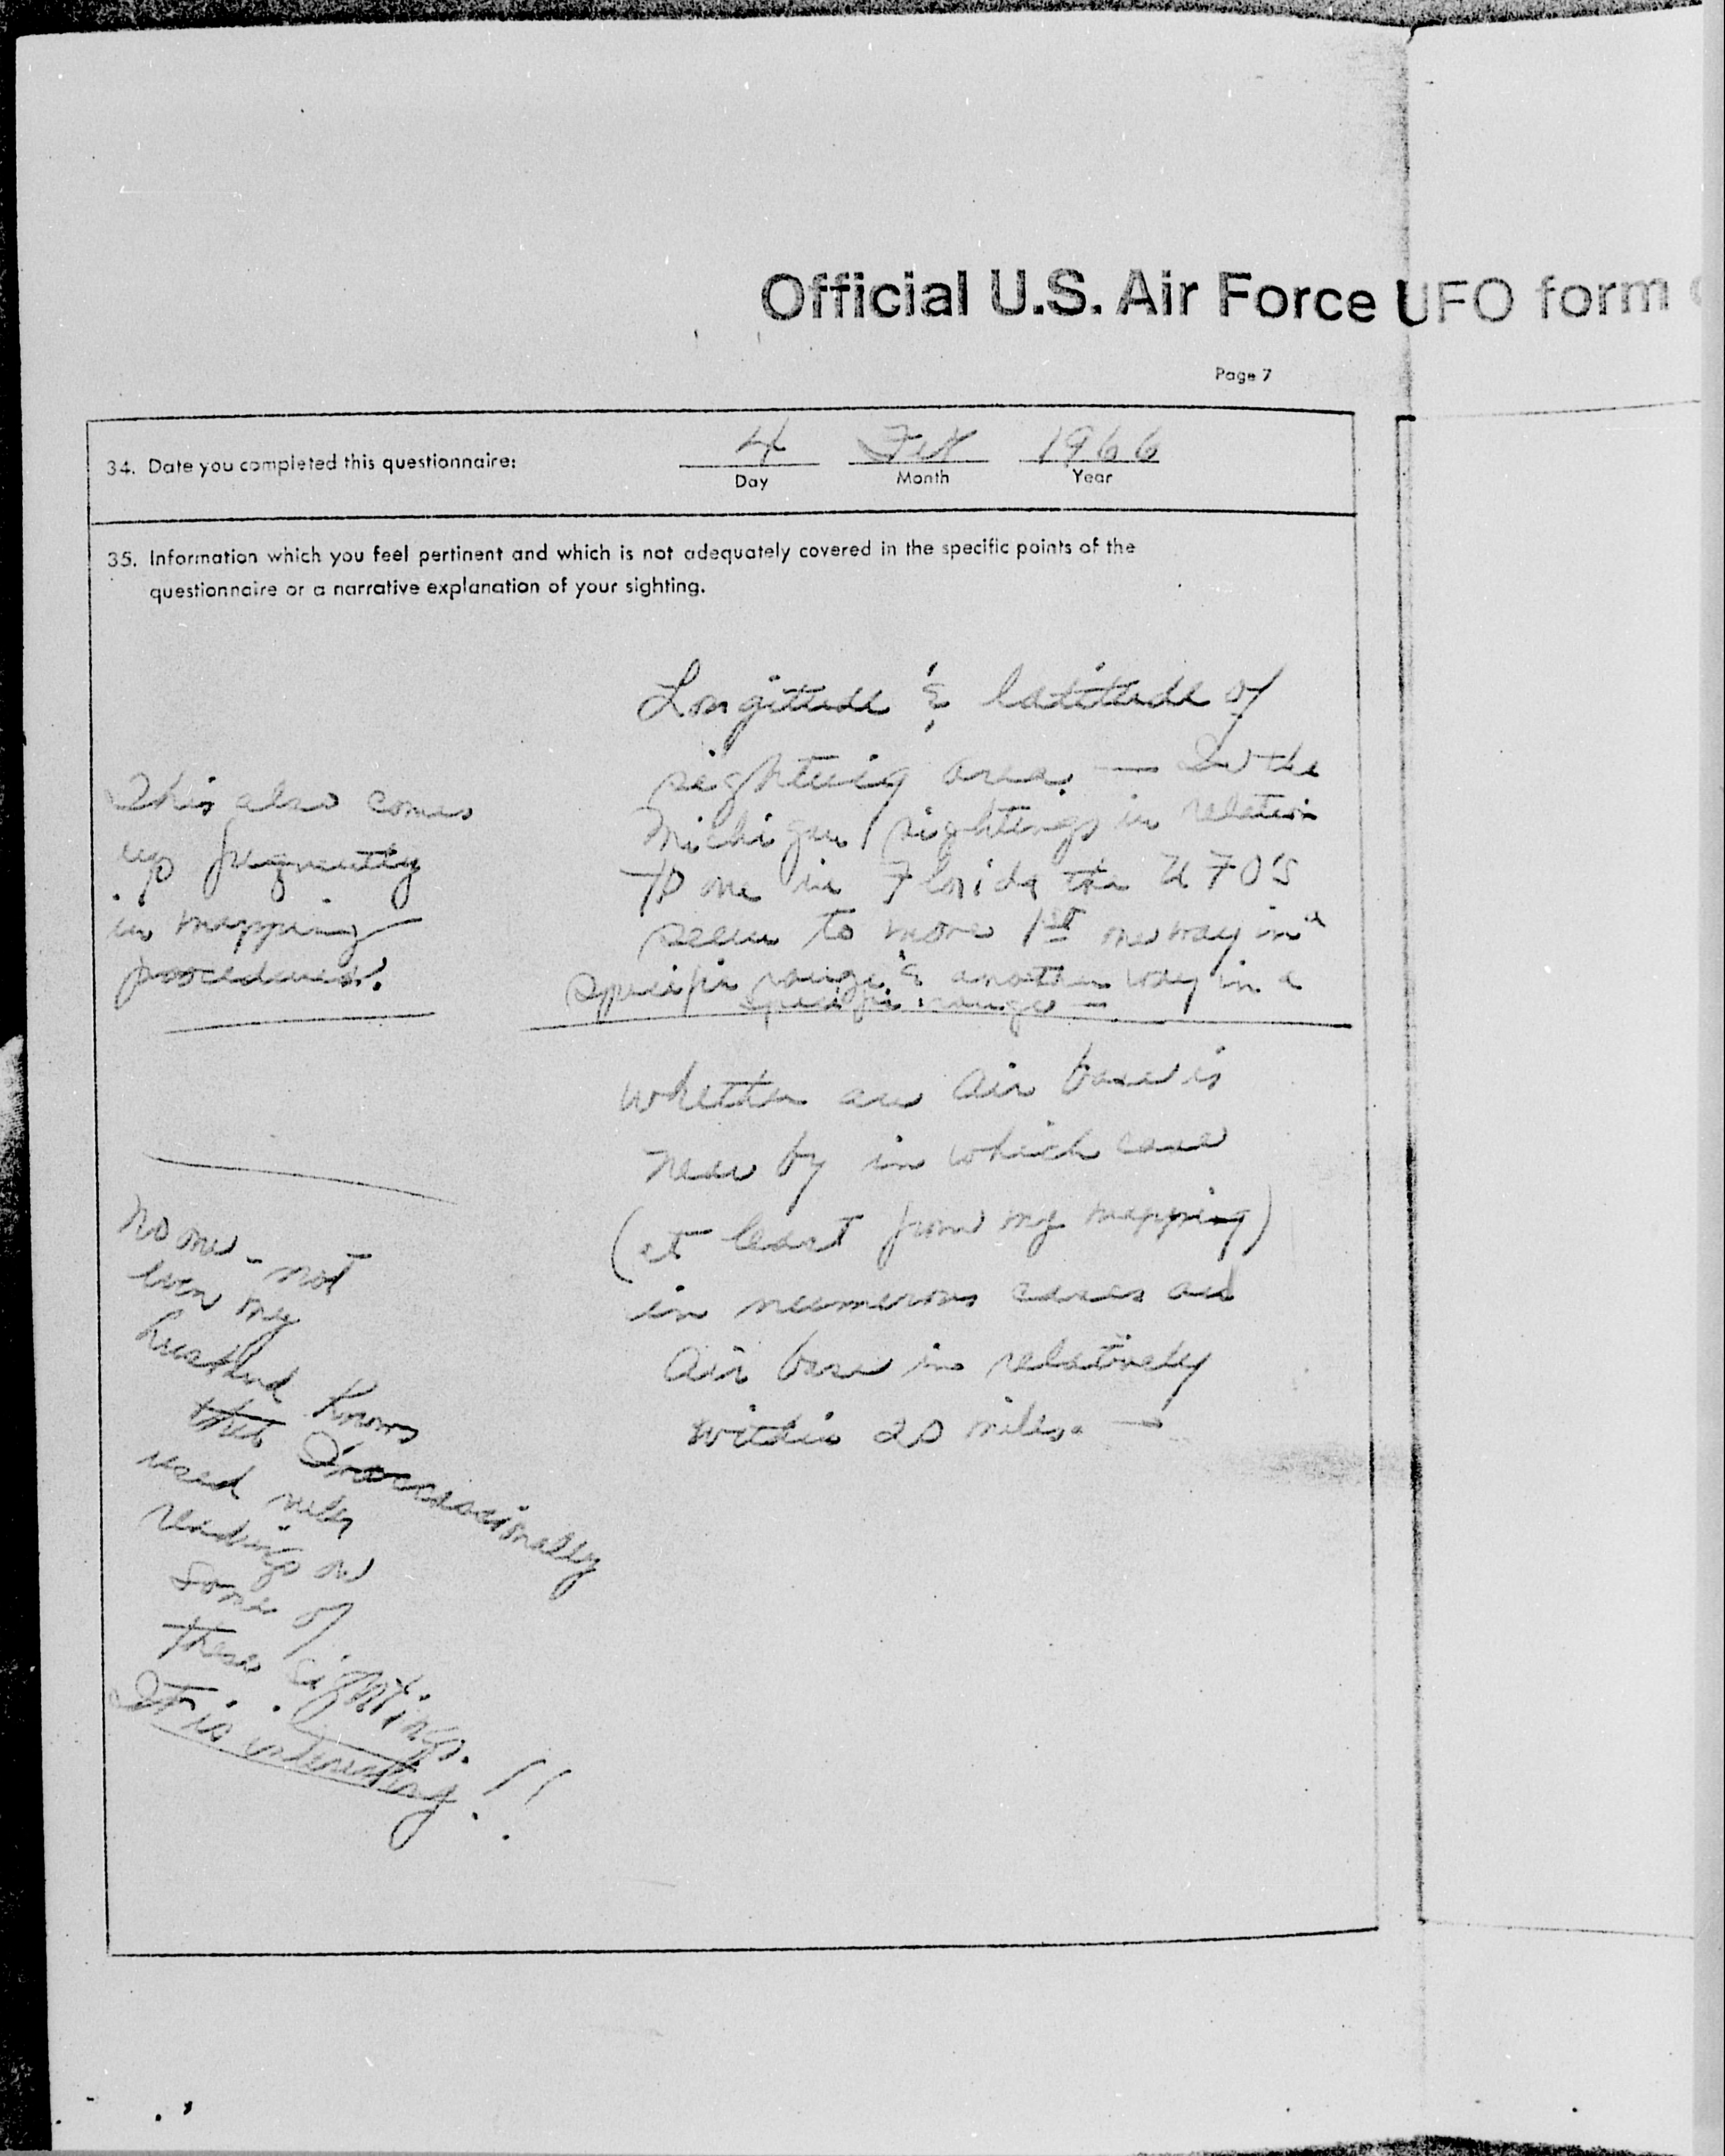 Official U.S. Air Force UFO form
Page 7
34. Date you completed this questionnaire:
4 Feb 1966
Day Month Year
35. Information which you feel pertinent and which is not adequately covered in the specific points of the
questionnaire or a narrative explanation of your sighting.
Longitude & latitude of
sighting area. — In the
Michigan sightings in relation
to one in Florida the UFO'S
seem to move 1st one way in a
specific range & another way in a
specific range —
This also comes
up frequently
in mapping
procedures.
whether an air base is
near by in which case
(at least from my mapping)
in numerous cases an
Air base is relatively
within 20 miles. —
No one - not
even my
husband knows
that I occasionally
used
readings on
some of
these sightings.
It is interesting!!